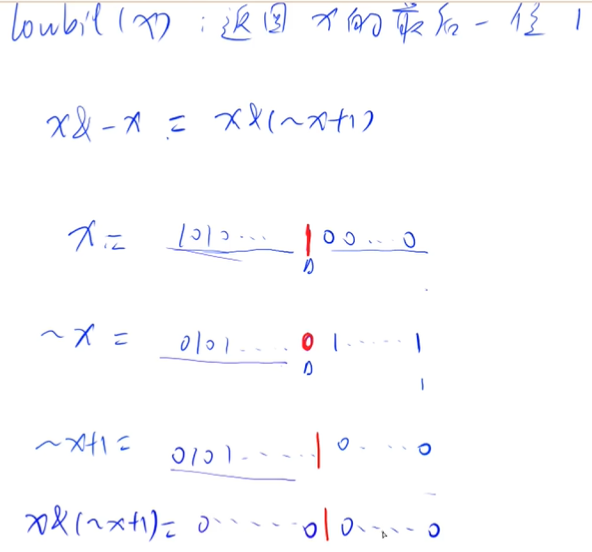 lowbit(x):返回x的最后一位1
x&-x = x&(~x+1)
x = 1010... 100...0
~x = 0101.... 01.....1
1
~x+1 = 0101..... 10....0
x&(~x+1) = 0.....010.....0